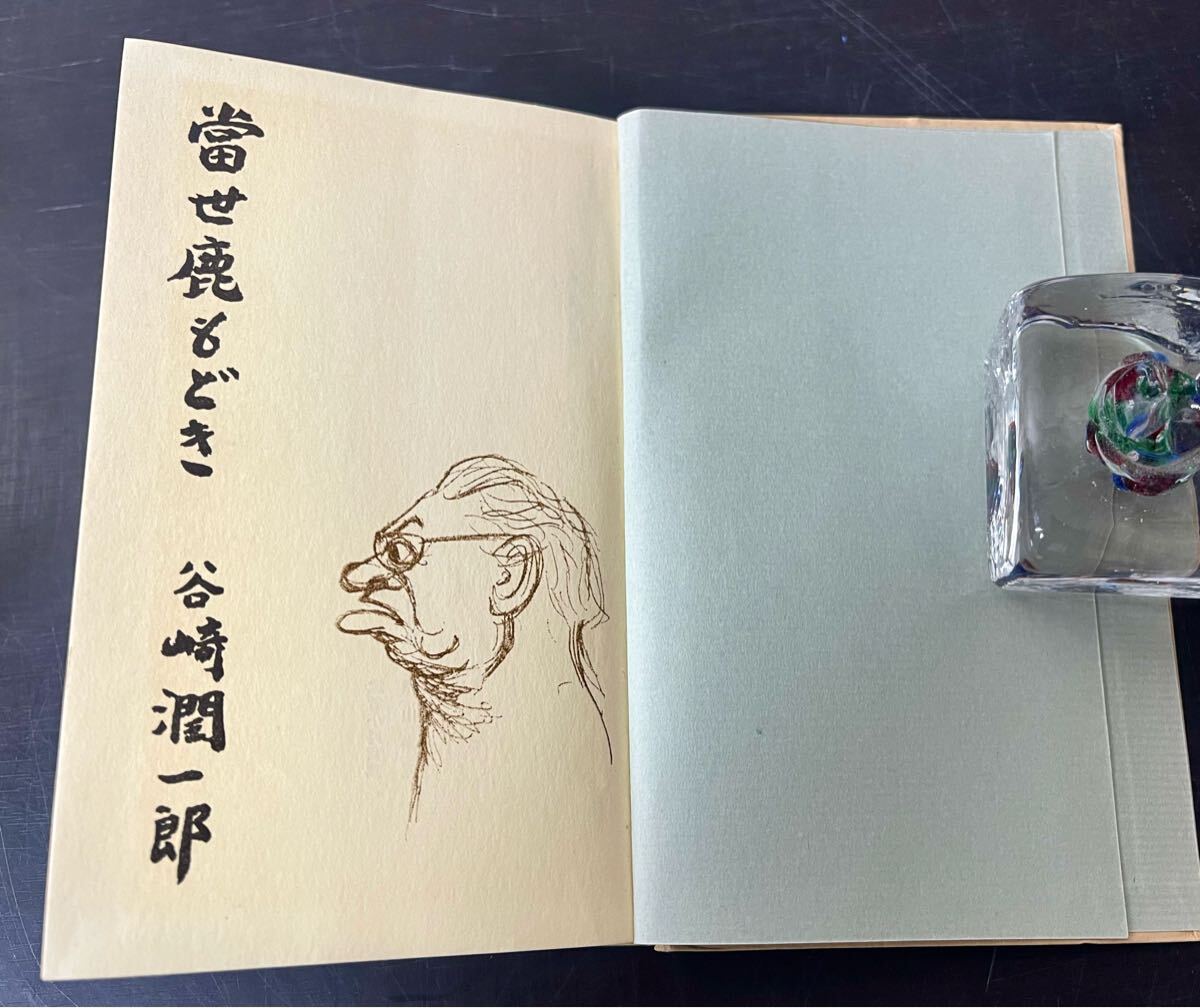 當世鹿もどき 谷崎潤一郎